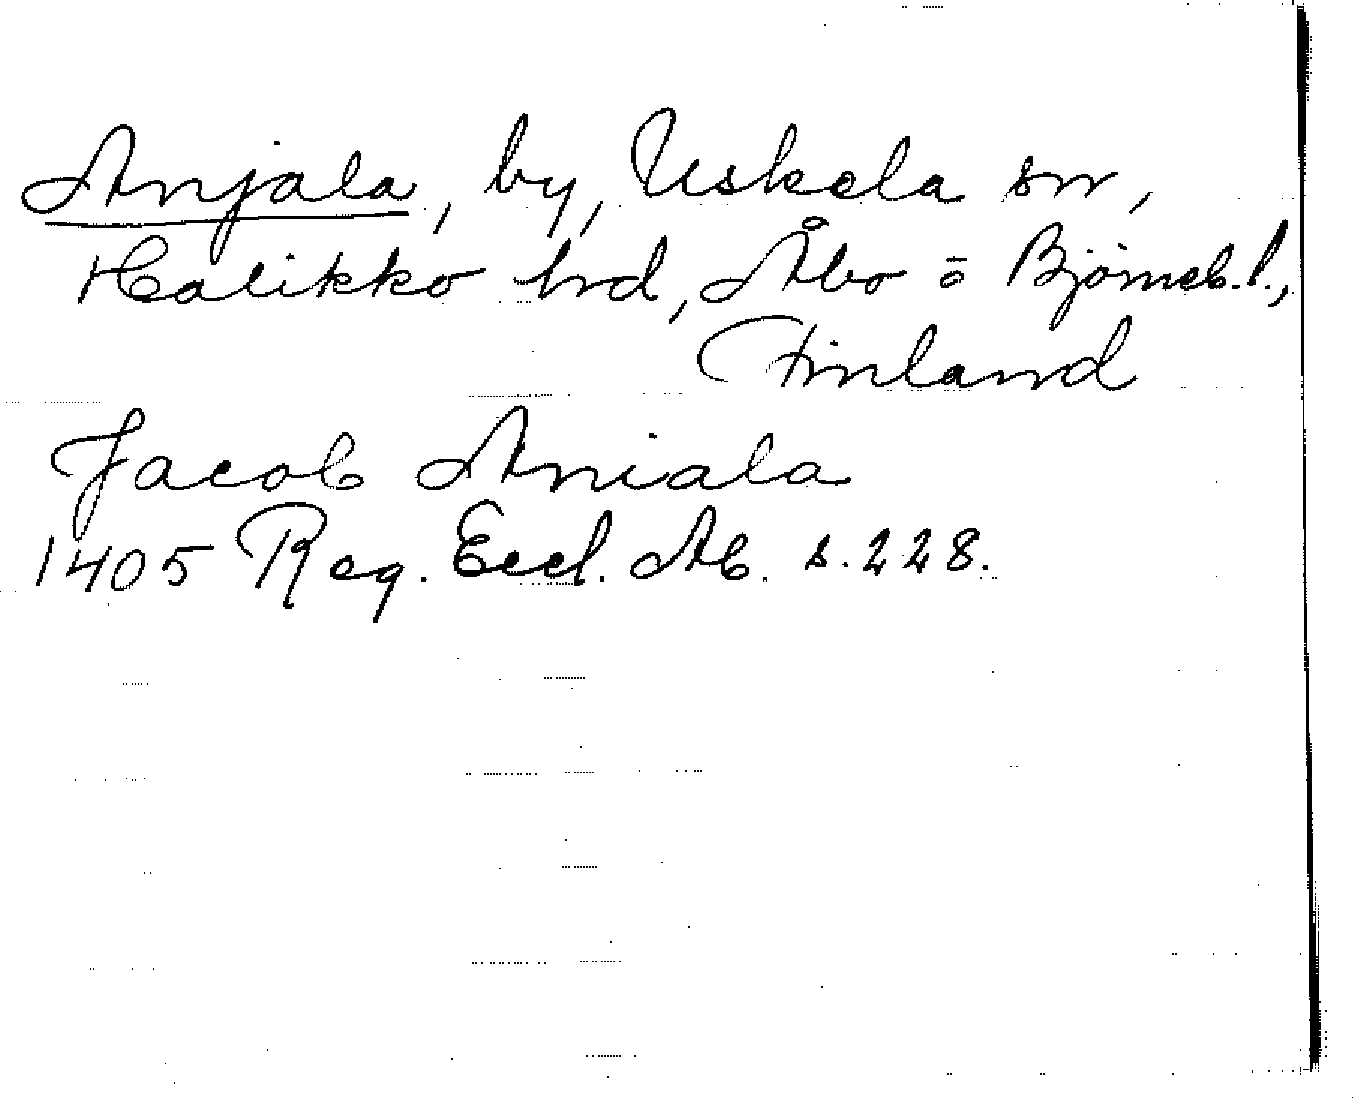 Anjala, by, Uskela sn,
Halikko hrd, Åbo o Björneb. l.,
Finland
Jacob Aniala
1405 Reg. Eccl. Ab. s. 228.